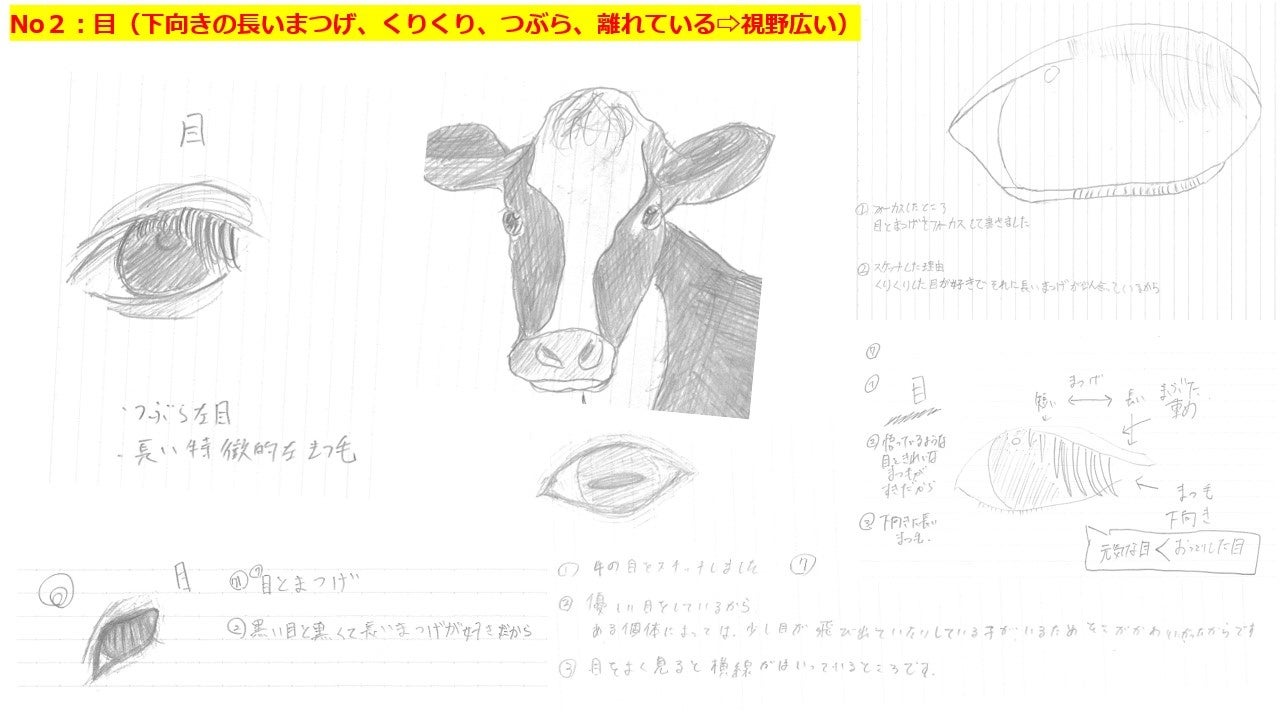 No2：目（下向きの長いまつげ、くりくり、つぶら、離れている⇨視野広い）
目
・つぶらな目
・長い特徴的なまつ毛
① フォーカスしたところ
目とまつげをフォーカスして書きました
② スケッチした理由
くりくりした目が好きで それに長いまつげが似合っているから
⑦
①
目
まつげ
短い
長い
まぶた
重め
② 悟っているような
目ときれいな
まつもが
すきだから
③ 下向きに長い
まつも。
まつも
下向き
元気な目<おっとりした目
目
① 目とまつげ
② 黒い目と黒くて長いまつげが好きだから
① 牛の目をスケッチしました
⑦
② 優しい目をしているから
ある個体によっては、少し目が飛び出ていたりしている子がいるためそこがかわいかったからです
③ 目をよく見ると横線がはいっているところです。